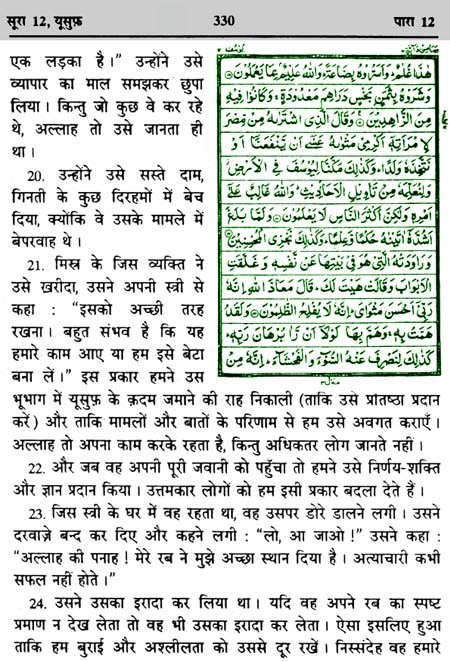 सूरा 12, यूसुफ़ 330 पारा 12
एक लड़का है।” उन्होंने उसे
व्यापार का माल समझकर छुपा
लिया। किन्तु जो कुछ वे कर रहे
थे, अल्लाह तो उसे जानता ही
था।
20. उन्होंने उसे सस्ते दाम,
गिनती के कुछ दिरहमों में बेच
दिया, क्योंकि वे उसके मामले में
बेपरवाह थे।
21. मिस्र के जिस व्यक्ति ने
उसे ख़रीदा, उसने अपनी स्त्री से
कहा : “इसको अच्छी तरह
रखना। बहुत संभव है कि यह
हमारे काम आए या हम इसे बेटा
बना लें।” इस प्रकार हमने उस
هٰذَا غُلٰمٌ ۭ وَاَسَرُّوْهُ بِضَاعَةً ۭ وَاللّٰهُ عَلِيْمٌۢ بِمَا يَعْمَلُوْنَ
وَشَرَوْهُ بِثَمَنٍۢ بَخْسٍ دَرَاهِمَ مَعْدُوْدَةٍ ۚ وَكَانُوْا فِيْهِ
مِنَ الزَّاهِدِيْنَ وَقَالَ الَّذِى اشْتَرٰىهُ مِنْ مِّصْرَ
لِامْرَاَتِهٖٓ اَكْرِمِىْ مَثْوٰىهُ عَسٰٓى اَنْ يَّنْفَعَنَآ اَوْ
نَتَّخِذَهٗ وَلَدًا ۭ وَكَذٰلِكَ مَكَّنَّا لِيُوْسُفَ فِى الْاَرْضِ
وَلِنُعَلِّمَهٗ مِنْ تَاْوِيْلِ الْاَحَادِيْثِ ۭ وَاللّٰهُ غَالِبٌ عَلٰٓى
اَمْرِهٖ وَلٰكِنَّ اَكْثَرَ النَّاسِ لَا يَعْلَمُوْنَ وَلَمَّا بَلَغَ
اَشُدَّهٗٓ اٰتَيْنٰهُ حُكْمًا وَّعِلْمًا ۭ وَكَذٰلِكَ نَجْزِى الْمُحْسِنِيْنَ
وَرَاوَدَتْهُ الَّتِىْ هُوَ فِىْ بَيْتِهَا عَنْ نَّفْسِهٖ وَغَلَّقَتِ
الْاَبْوَابَ وَقَالَتْ هَيْتَ لَكَ ۭ قَالَ مَعَاذَ اللّٰهِ اِنَّهٗ
رَبِّىْٓ اَحْسَنَ مَثْوَاىَ ۭ اِنَّهٗ لَا يُفْلِحُ الظّٰلِمُوْنَ وَلَقَدْ
هَمَّتْ بِهٖ ۚ وَهَمَّ بِهَا لَوْلَآ اَنْ رَّاٰ بُرْهَانَ رَبِّهٖ ۭ
كَذٰلِكَ لِنَصْرِفَ عَنْهُ السُّوْۤءَ وَالْفَحْشَآءَ ۭ اِنَّهٗ مِنْ
भूभाग में यूसुफ़ के क़दम जमाने की राह निकाली (ताकि उसे प्रतिष्ठा प्रदान
करें) और ताकि मामलों और बातों के परिणाम से हम उसे अवगत कराएँ।
अल्लाह तो अपना काम करके रहता है, किन्तु अधिकतर लोग जानते नहीं।
22. और जब वह अपनी पूरी जवानी को पहुँचा तो हमने उसे निर्णय-शक्ति
और ज्ञान प्रदान किया। उत्तमकार लोगों को हम इसी प्रकार बदला देते हैं।
23. जिस स्त्री के घर में वह रहता था, वह उसपर डोरे डालने लगी। उसने
दरवाज़े बन्द कर दिए और कहने लगी : “लो, आ जाओ!” उसने कहा :
“अल्लाह की पनाह! मेरे रब ने मुझे अच्छा स्थान दिया है। अत्याचारी कभी
सफल नहीं होते।”
24. उसने उसका इरादा कर लिया था। यदि वह अपने रब का स्पष्ट
प्रमाण न देख लेता तो वह भी उसका इरादा कर लेता। ऐसा इसलिए हुआ
ताकि हम बुराई और अश्लीलता को उससे दूर रखें। निस्संदेह वह हमारे